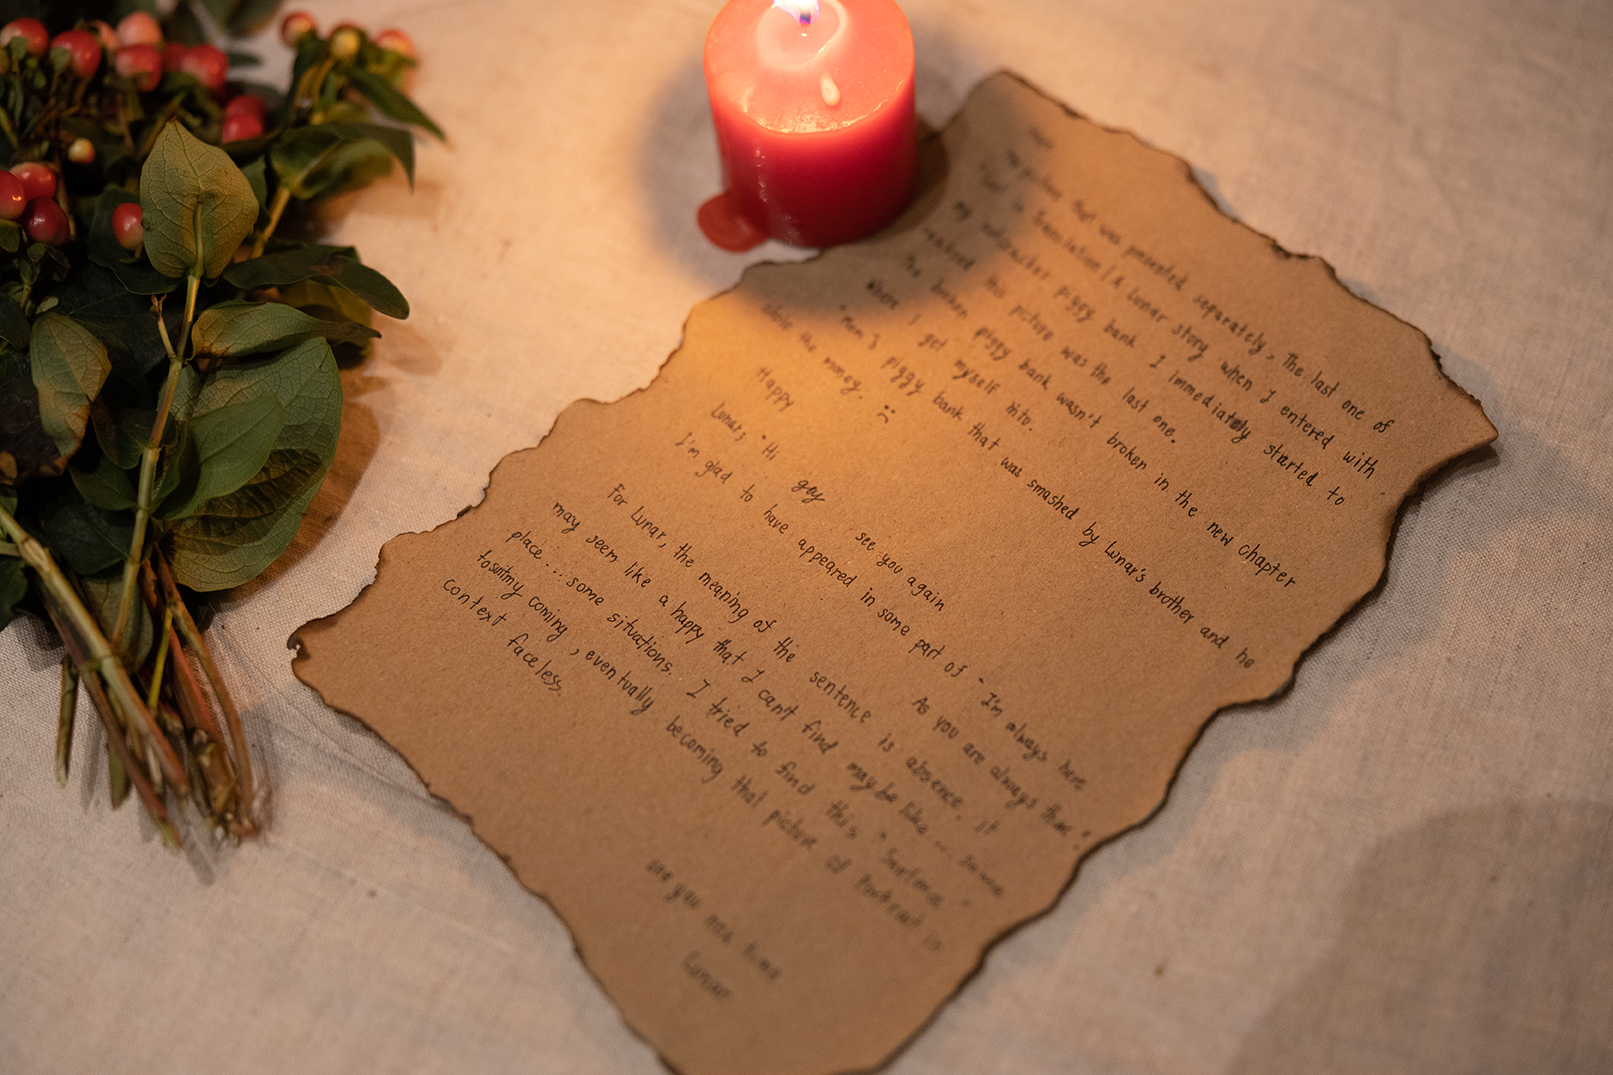 The picture that was presented separately, The last one of
"Lost in Translation | a Lunar story when I entered with
my piggy bank I immediately started to
realized this picture was the last one.
The broken piggy bank wasn't broken in the new chapter
When I get myself into.
"Mom's piggy bank that was smashed by Lunar's brother and he
stole the money. :(
Happy
Lunar; "Hi guy see you again
I'm glad to have appeared in some part of "I'm always here
As you are always there".
For Lunar, the meaning of the sentence is absence. it
may seem like a happy that I can't find maybe like... Some
place... some situations. I tried to find this "Sentence"
coming, eventually becoming that picture of Portrait in
context faceless.
see you next time
Lunar